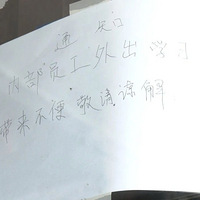 通知
内部员工外出学习
带来不便 敬请谅解